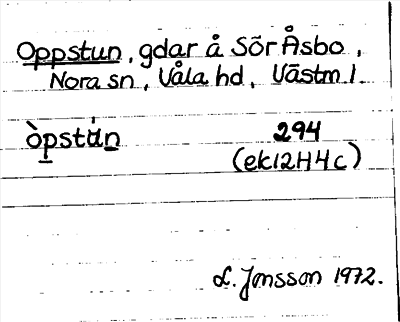 Oppstun, gdar å Sör Åsbo,
Nora sn, Våla hd, Västm l.
òpstán 294
(ek12H4c)
L. Jonsson 1972.